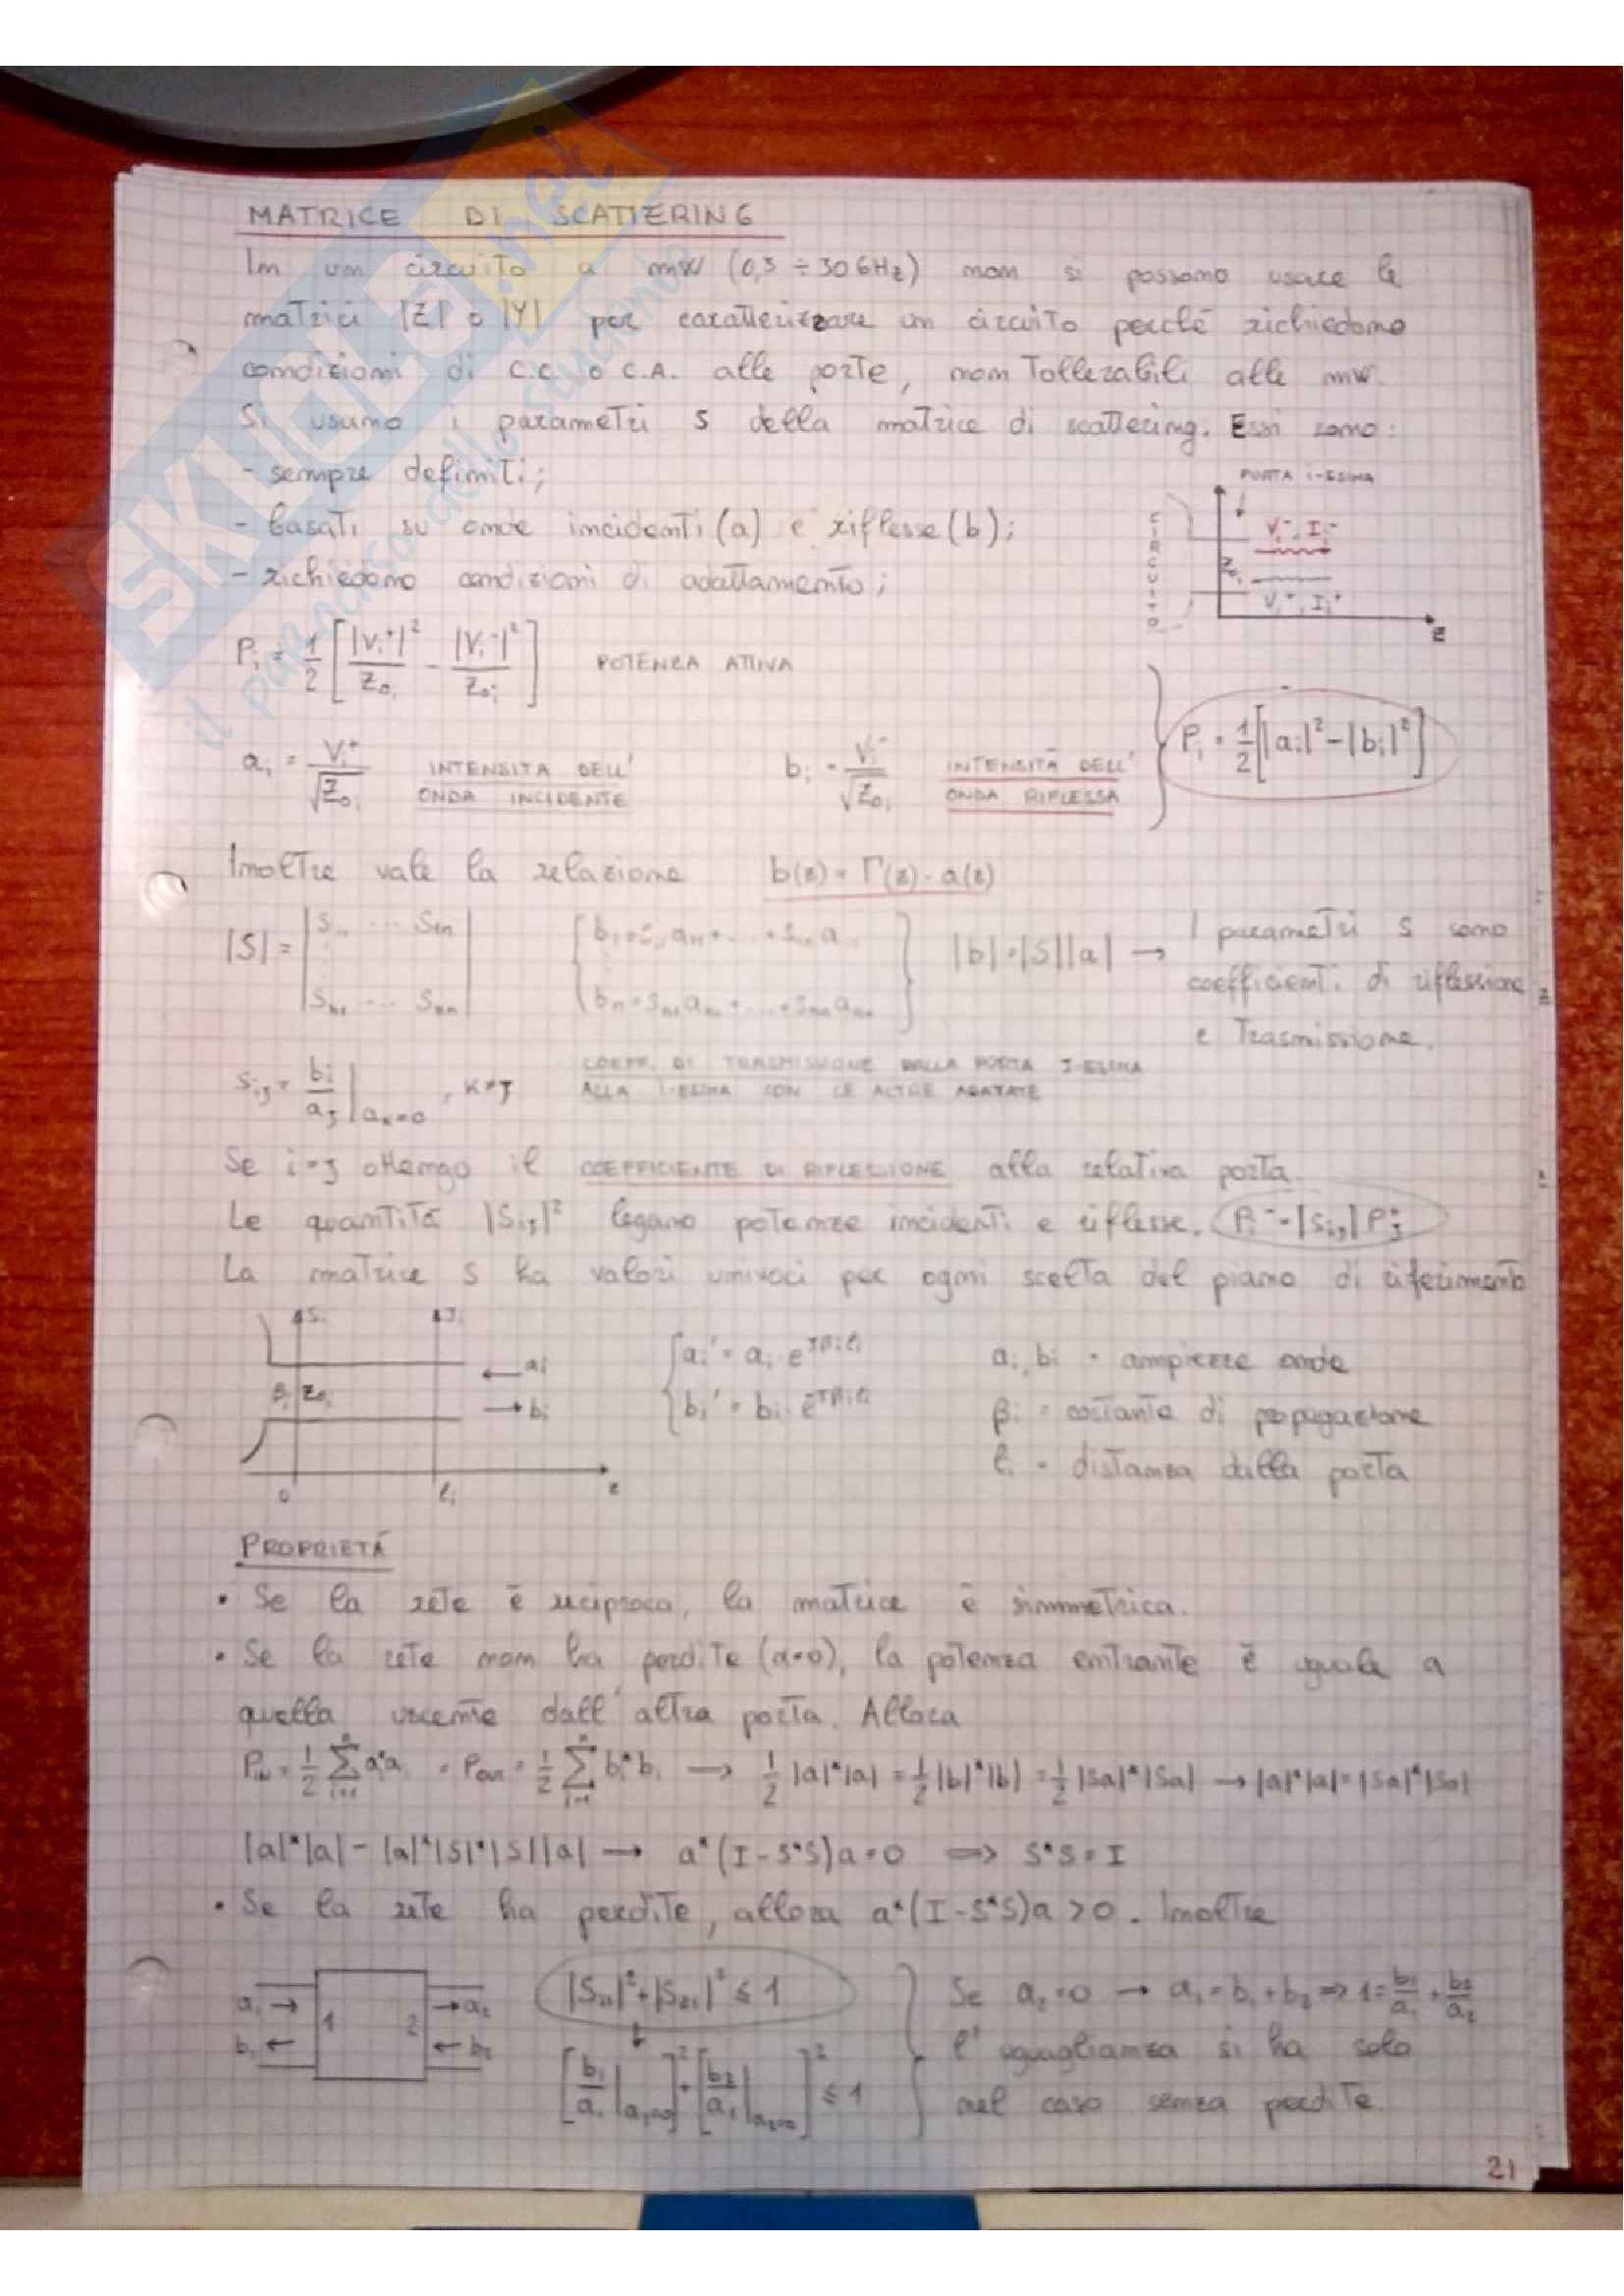 MATRICE DI SCATTERING
In un circuito a mW (0,3 ÷ 30 GHz) non si possono usare le
matrici |Z| o |Y| per caratterizzare un circuito perché richiedono
condizioni di C.C. o C.A. alle porte, non tollerabili alle mW.
Si usano i parametri S della matrice di scattering. Essi sono:
- sempre definiti;
- basati su onde incidenti (a) e riflesse (b);
- richiedono condizioni di adattamento;
PORTA i-ESIMA
CIRCUITO
Vi⁻, Ii⁻
Z0i
Vi⁺, Ii⁺
z
Pi = 1/2 [|Vi⁺|²/Z0i - |Vi⁻|²/Z0i] POTENZA ATTIVA
ai = Vi⁺/√Z0i INTENSITÀ DELL' ONDA INCIDENTE
bi = Vi⁻/√Z0i INTENSITÀ DELL' ONDA RIFLESSA
Pi = 1/2 [|ai|² - |bi|²]
Inoltre vale la relazione b(z) = Γ(z) · a(z)
|b| = |S||a| → I parametri S sono
coefficienti di riflessione
e trasmissione.
Sij = bi/aj | ak=0 , K≠J
COEFF. DI TRASMISSIONE DALLA PORTA J-ESIMA
ALLA I-ESIMA CON LE ALTRE ADATATE
Se i=j ottengo il COEFFICIENTE DI RIFLESSIONE alla relativa porta.
Le quantità |Sij|² legano potenze incidenti e riflesse. Pi⁻ = |Sij| Pj⁺
La matrice S ha valori univoci per ogni scelta del piano di riferimento
βi Z0i
← ai
→ bi
0 li z
ai' = ai · e^jβili
bi' = bi · e^-jβili
ai, bi = ampiezze onde
βi = costante di propagazione
li = distanza dalla porta
PROPRIETÁ
• Se la rete è reciproca, la matrice è simmetrica.
• Se la rete non ha perdite (α=0), la potenza entrante è uguale a
quella uscente dall'altra porta. Allora
PIN = 1/2 Σ ai*ai = POUT = 1/2 Σ bi*bi → 1/2 |a|*|a| = 1/2 |b|*|b| = 1/2 |Sa|*|Sa| → |a|*|a| = |Sa|*|Sa|
|a|*|a| - |a|*|S|*|S||a| → a*(I - S*S)a = 0 ⟹ S*S = I
• Se la rete ha perdite, allora a*(I - S*S)a > 0. Inoltre
a1 → 1 2 → a2
b1 ← ← b2
|S11|² + |S21|² ≤ 1
[b1/a1 | a2=0]² + [b2/a1 | a2=0]² ≤ 1
Se a2=0 → a1 = b1 + b2 ⟹ 1 = b1/a1 + b2/a2
l'uguaglianza si ha solo
nel caso senza perdite.
21
SKUOLA.net
il paradiso dello studente